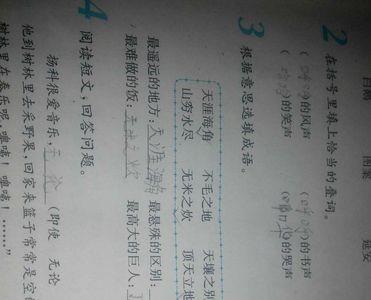 自菊 图案 延安
2 在括号里填上恰当的叠词。
( )的风声 ( )的书声
( )的笑声 ( )的哭声
3 根据意思选填成语。
天涯海角 不毛之地 天壤之别
山穷水尽 无米之炊 顶天立地
最遥远的地方:天涯海角 最悬殊的区别:
最难做的饭:无米之炊 最高大的巨人:
4 阅读短文,回答问题。
扬科很爱音乐,无论(即使 无论
他到树林里去采野果,回家来篮子常常是空的
树林里在奏乐呢,嗷嘻!嗷嘻!……”